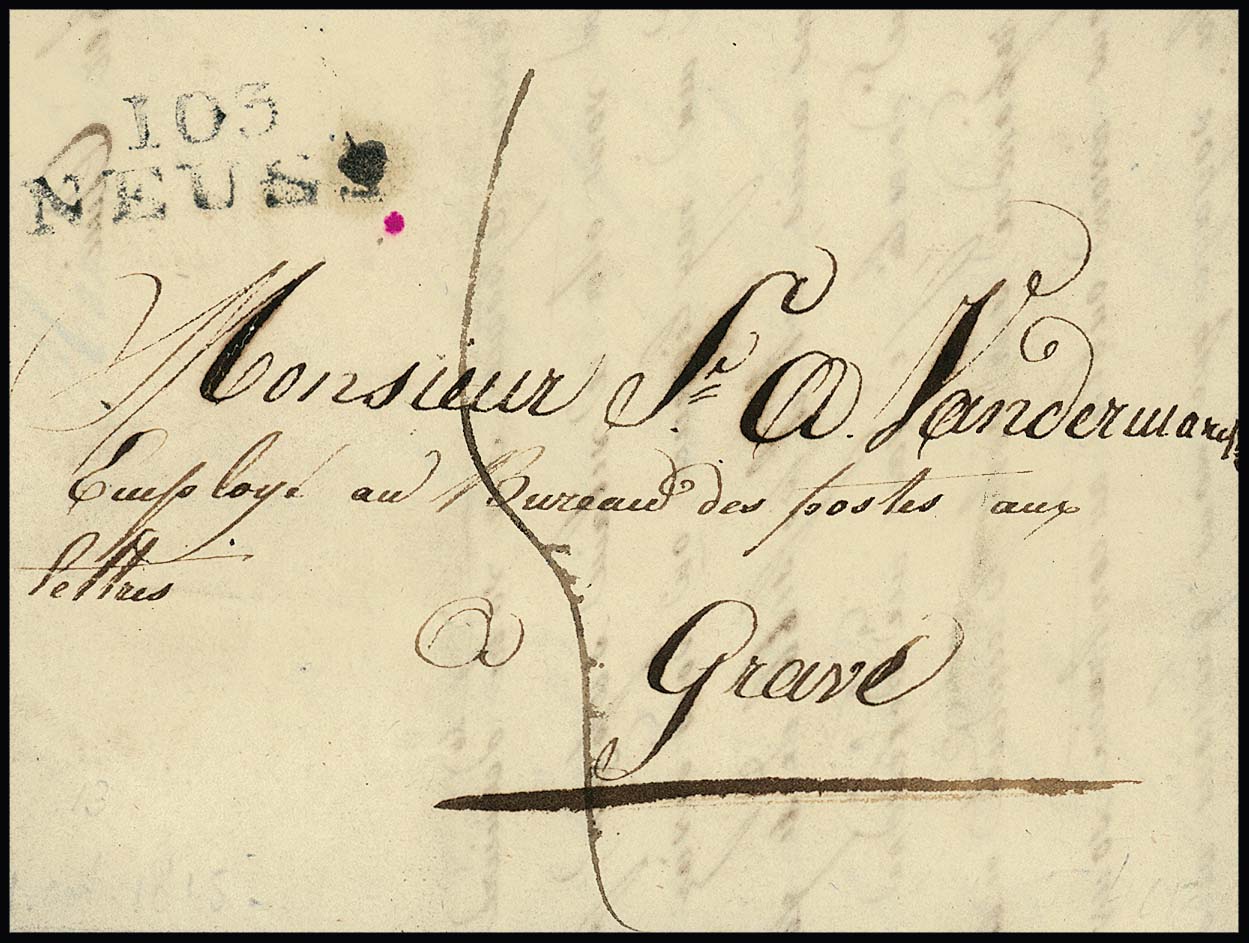 103
NEUSS
Monsieur Sr. A. Vandermaref
Employé au Bureau des postes aux
lettres
a Gravé